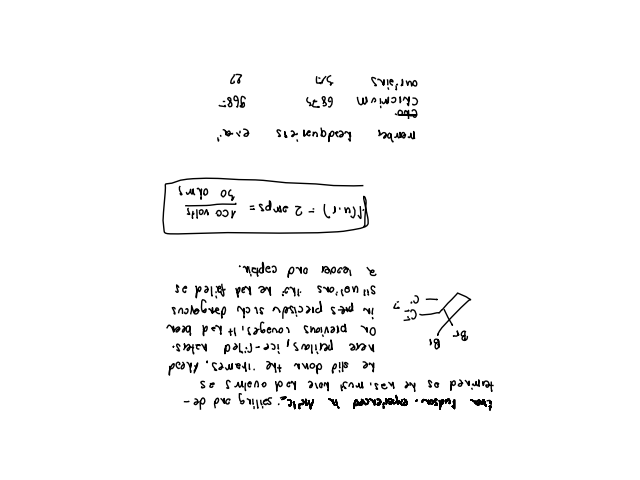 Even Hudson, experienced in Arctic sailing and de-
termined as he was, must have had qualms as
he slid down the Thames. Ahead
were perilous, ice-filled waters.
On previous voyages, it had been
in precisely such dangerous
situations that he had failed as
a leader and captain.
Br
Br
Cl
Cl
= 2 amps = 100 volts
50 ohms
member headquarters
chromium 6873 968
curtains 27